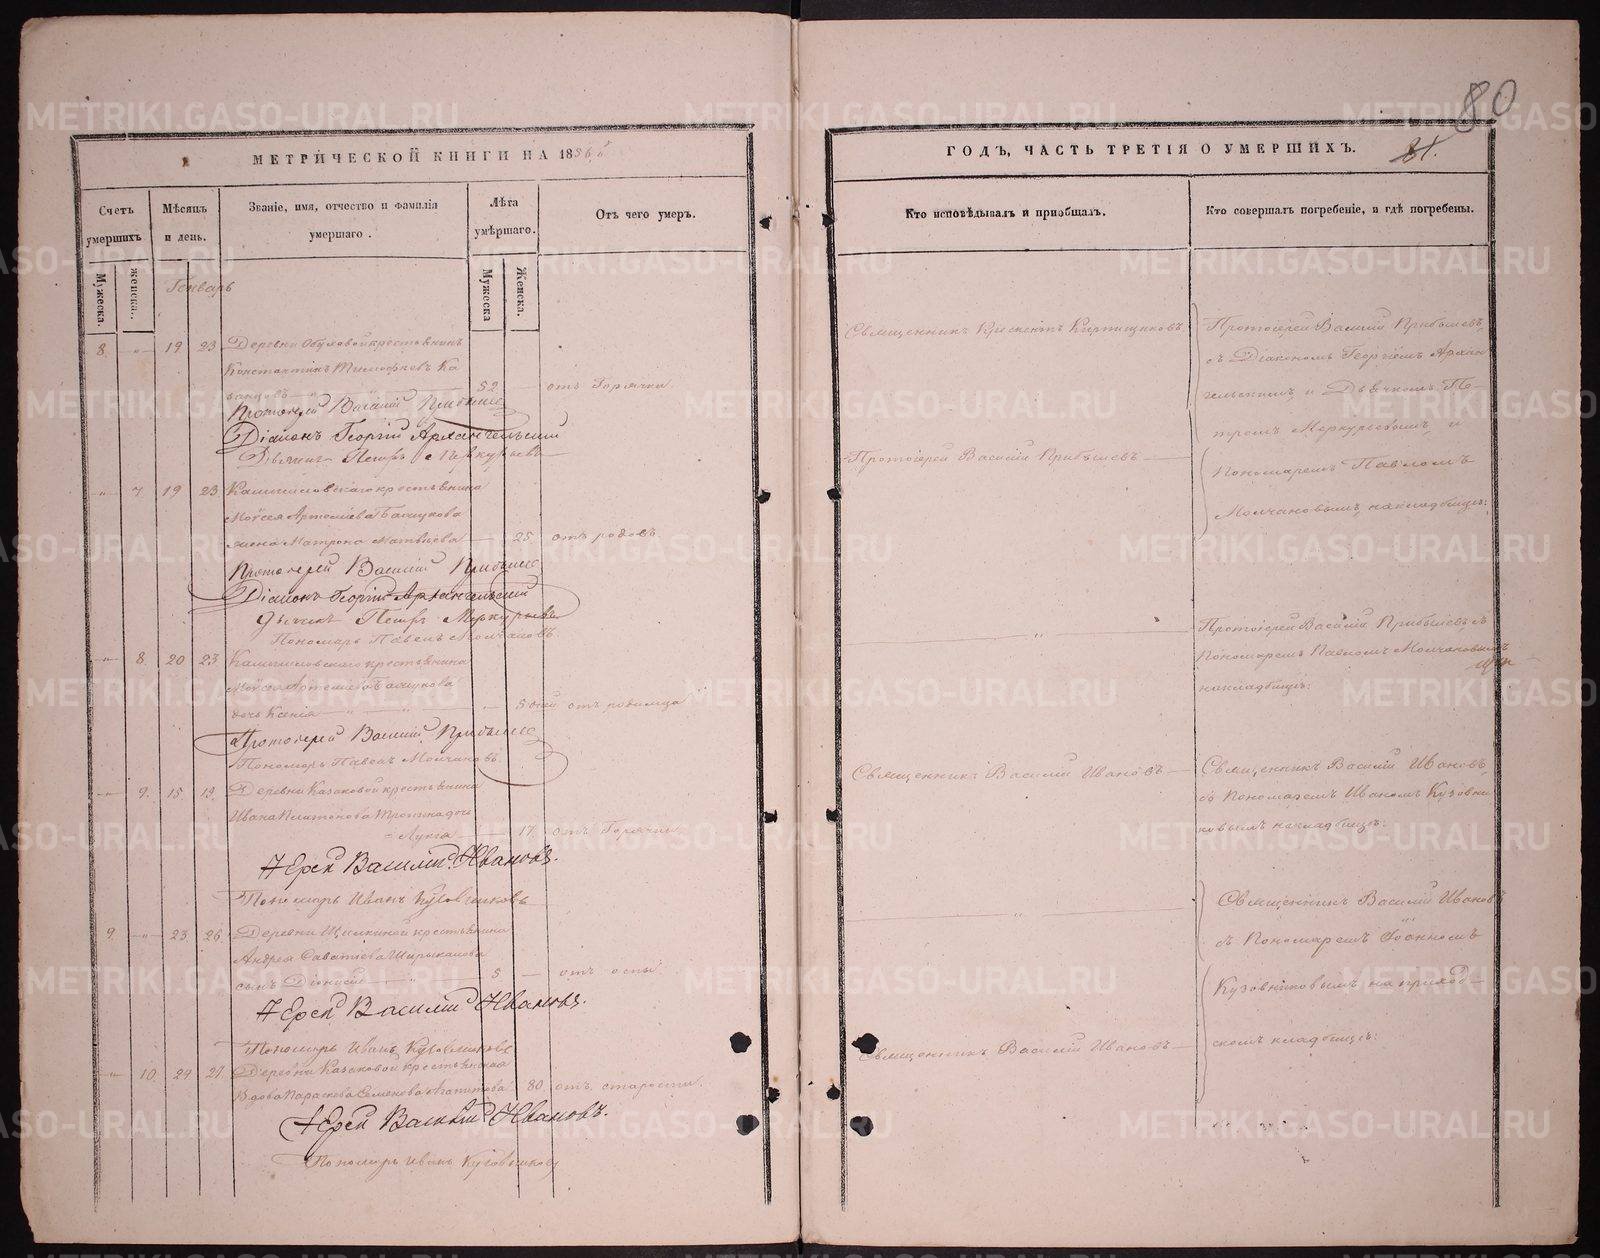 80
МЕТРИЧЕСКОЙ КНИГИ НА 1856й
ГОДЪ, ЧАСТЬ ТРЕТІЯ О УМЕРШИХЪ.
81.
Счетъ умершихъ
Мужеска.
женска.
Мѣсяцъ и день.
Званіе, имя, отчество и фамилія умершаго.
Лѣта умершаго.
Мужеска
Женска.
Отъ чего умеръ.
Кто исповѣдывалъ и пріобщалъ.
Кто совершалъ погребеніе, и гдѣ погребены.
Генварь
8 „ 19 23 Деревни Обуховой крестьянинъ
Константинъ Тимофеевъ Ка
занцовъ 52 — отъ Горячки
Священникъ Крискентъ Кирпищиковъ
Протоіерей Василій Прибылевъ
съ Діакономъ Георгіемъ Архан
гельскимъ и Дьячкомъ Пе-
тромъ Меркурьевымъ и
Протоіерей Василій Прибылев
Діаконъ Георгій Архангельский
Дьячекъ Петръ Меркурьевъ
„ 7 19 23 Камышловскаго крестьянина
Моѵсея Артеміева Басцукова
жена Матрона Матвѣева 25 отъ родовъ.
Протоіерей Василій Прибылевъ
Пономаремъ Павломъ
Молчановымъ на кладбищѣ:
Протоіерей Василій Прибылев
Діаконъ Георгій Архангельский
Дьячекъ Петръ Меркурьевъ
Пономарь Павелъ Молчановъ.
„ 8 20 23 Камышловскаго крестьянина
Моѵсея Артеміева
дочь Ксенія 5 дней отъ родимца
Протоіерей Василій Прибылевъ съ
Пономаремъ Павломъ Молчановымъ
на кладбищѣ:
Протоіерей Василій Прибылев
Пономарь Павелъ Молчановъ.
„ 9. 15 19. Деревни Казаковой крестьянина
Ивана Платонова дочь
17. отъ Горячки
Священникъ Василій Ивановъ
Священникъ Василій Ивановъ
съ Пономаремъ Иваномъ Кузовни
ковымъ на кладбищѣ:
Іерей Василій Ивановъ.
Пономарь Иванъ Кузовниковъ
9. „ 23 26 Деревни крестьянина
Андрея Саватіева
сынъ Діонисій 5 — отъ оспы
Священникъ Василій Ивановъ
съ Пономаремъ Іоанномъ
Кузовниковымъ на приход-
скомъ кладбищѣ:
Іерей Василій Ивановъ.
Пономарь Иванъ Кузовниковъ
„ 10 24 27. Деревни Казаковой крестьянская
Вдова Параскева Семенова 80 отъ старости.
Священникъ Василій Ивановъ
Іерей Василій Ивановъ.
Пономарь Иванъ Кузовниковъ
METRIKI.GASO-URAL.RU